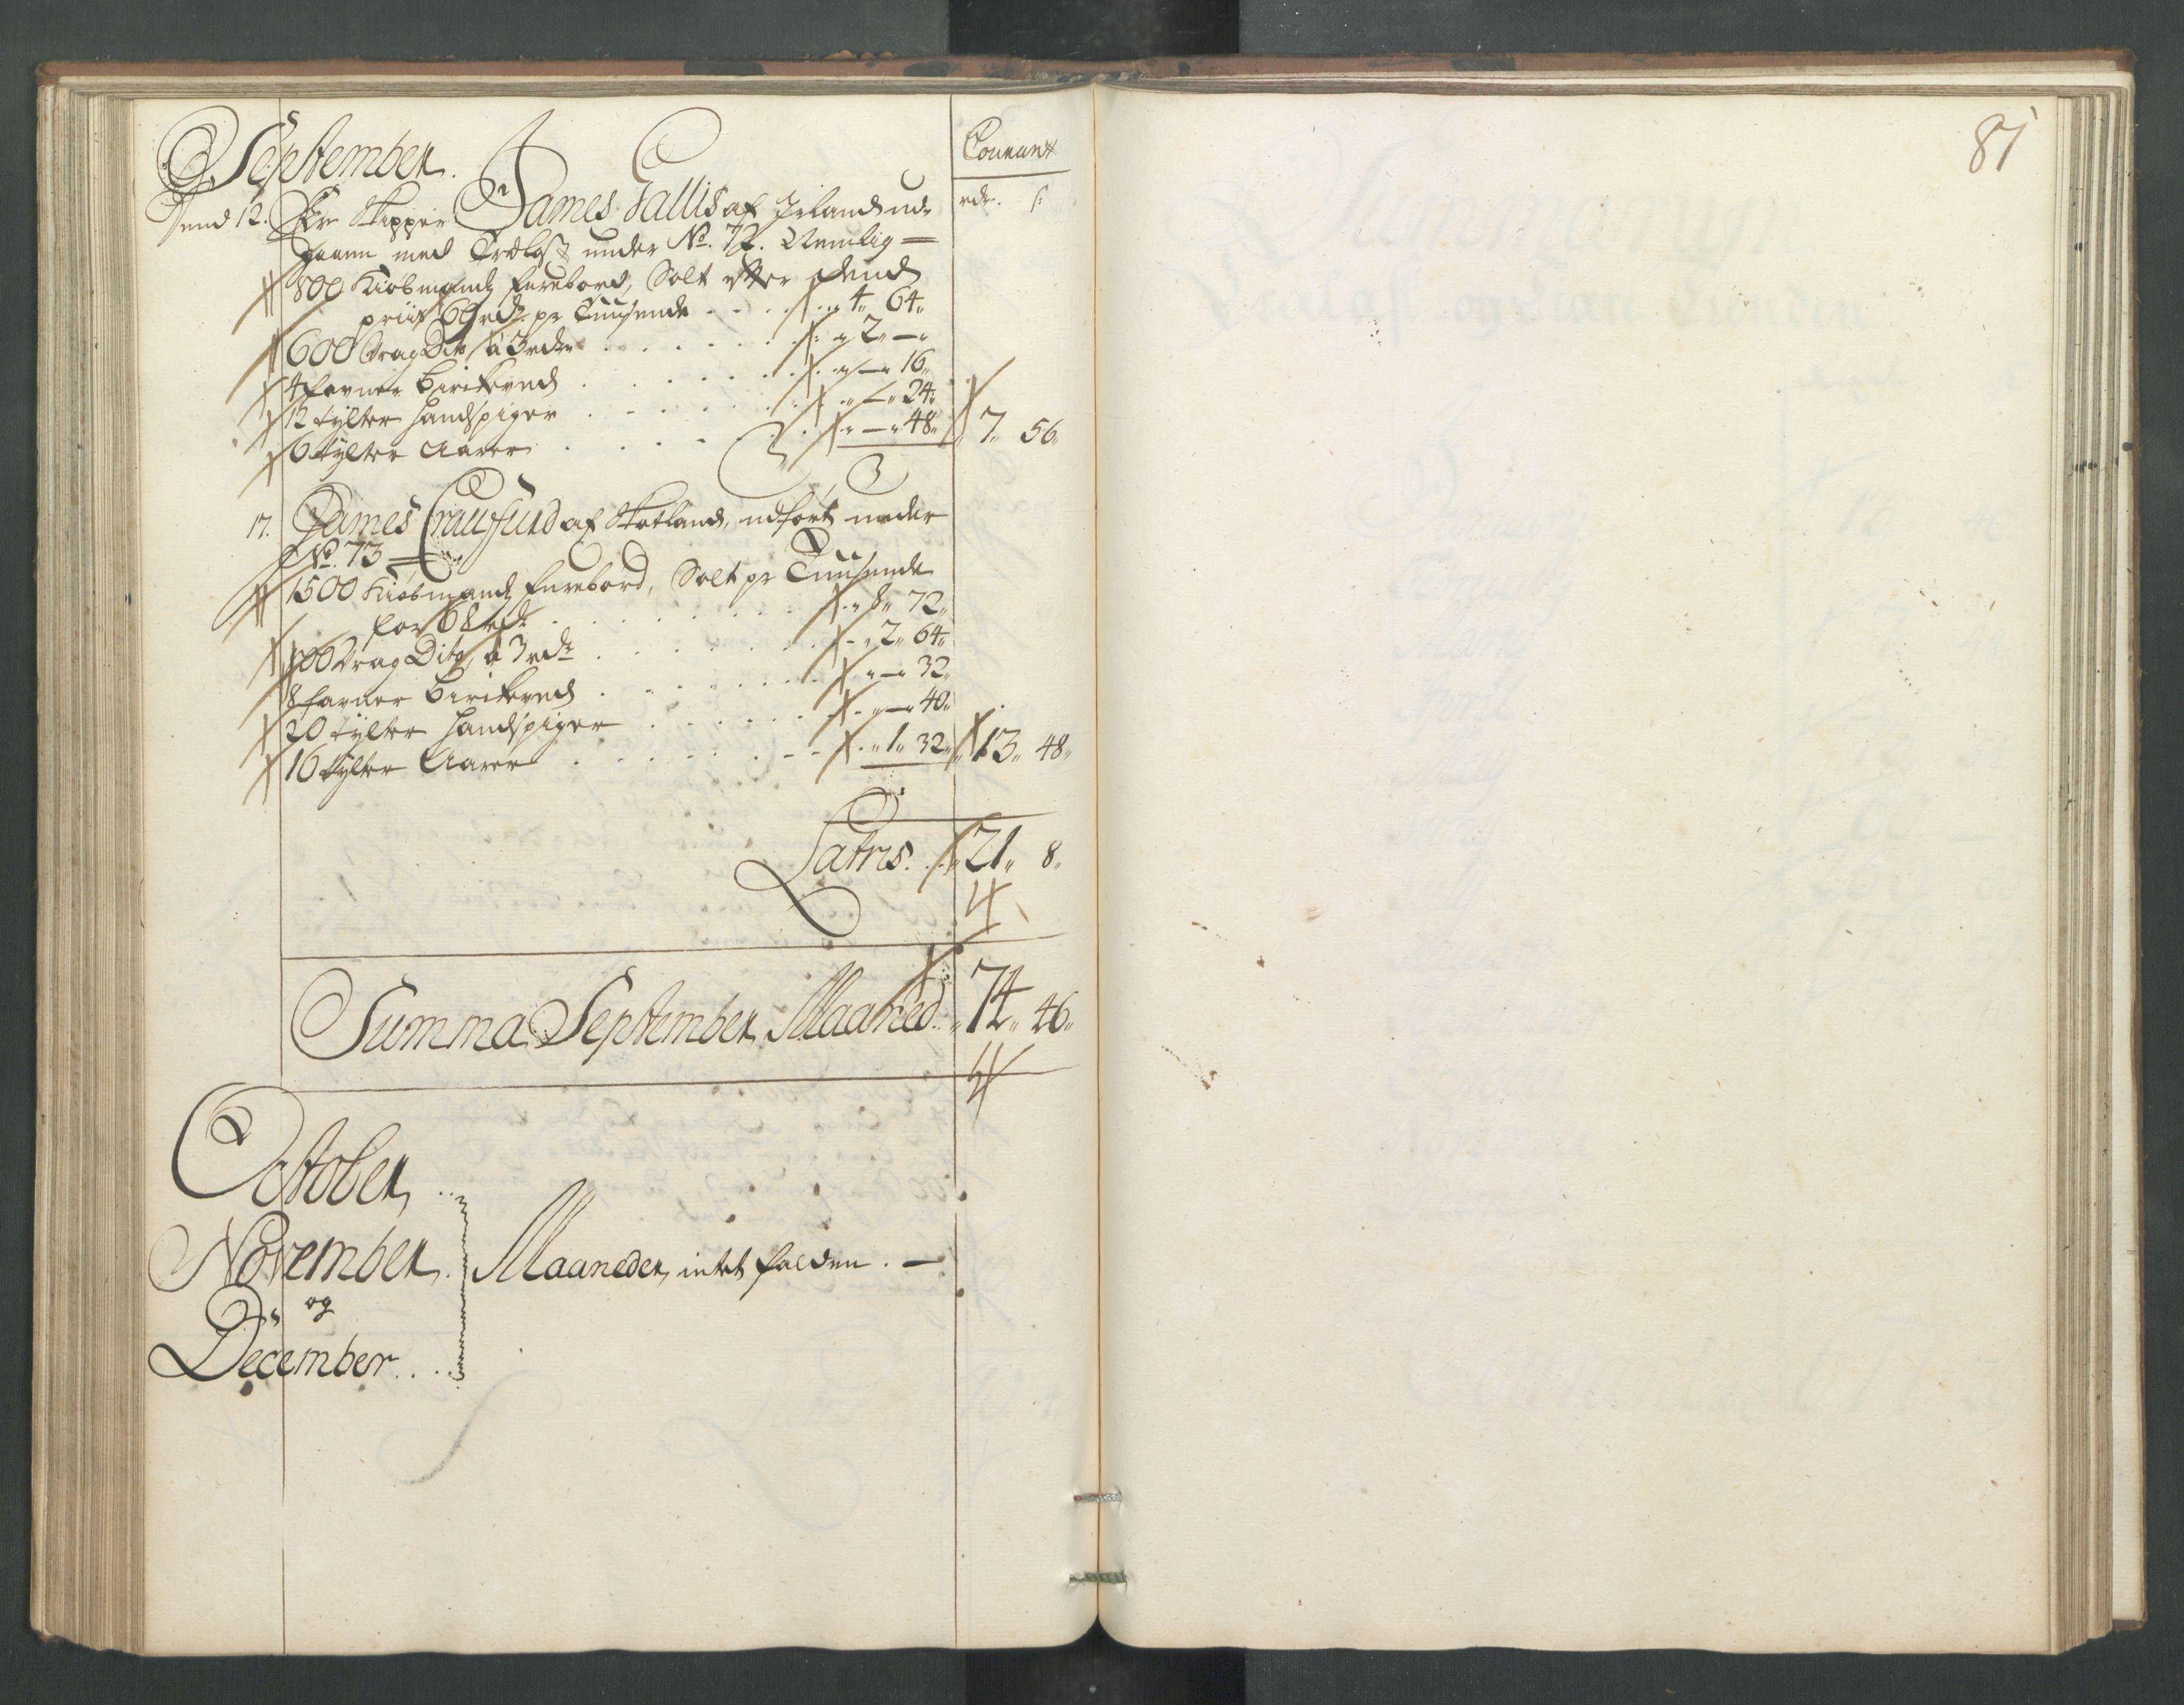 September.
Courant
rdr. s:
Dend 12. Er Skipper James Fallis af Irland ud-
gaaen med Trælast under No. 72. Nemlig —
800 Kiøbmands furebord, Solt efter dend
priis 69 rdr pr Tuusende . . . „ 4„ 64„
600 Vrag Dito â 3 rdr . . . . . . „ 2„ —„
4 favner Birkeved . . . . . . „ —„ 16„
12 tylter Handspiger . . . . . „ —„ 24„
6 tylter Aarer . . . . „ —„ 48„ „ 7„ 56„
17. James Craufurd af Skotland, udført under
No. 73 —
1500 Kiøbmands furebord, Solt pr Tuusende
for 68 rdr . . . . . . . „ 8„ 72„
800 Vrag Dito, â 3 rdr . . . . . . „ 2„ 64„
8 favner Birkeved . . . . . . „ —„ 32„
20 tylter Handspiger . . . . . . „ —„ 40„
16 tylter Aarer . . . . . . „ 1„ 32„ „ 13„ 48„
Latris. . „ 21„ 8„
Summa September Maaned. „ 74„ 46„
October, . .
November. Maaneder, intet falden. —
og
December. . .
81